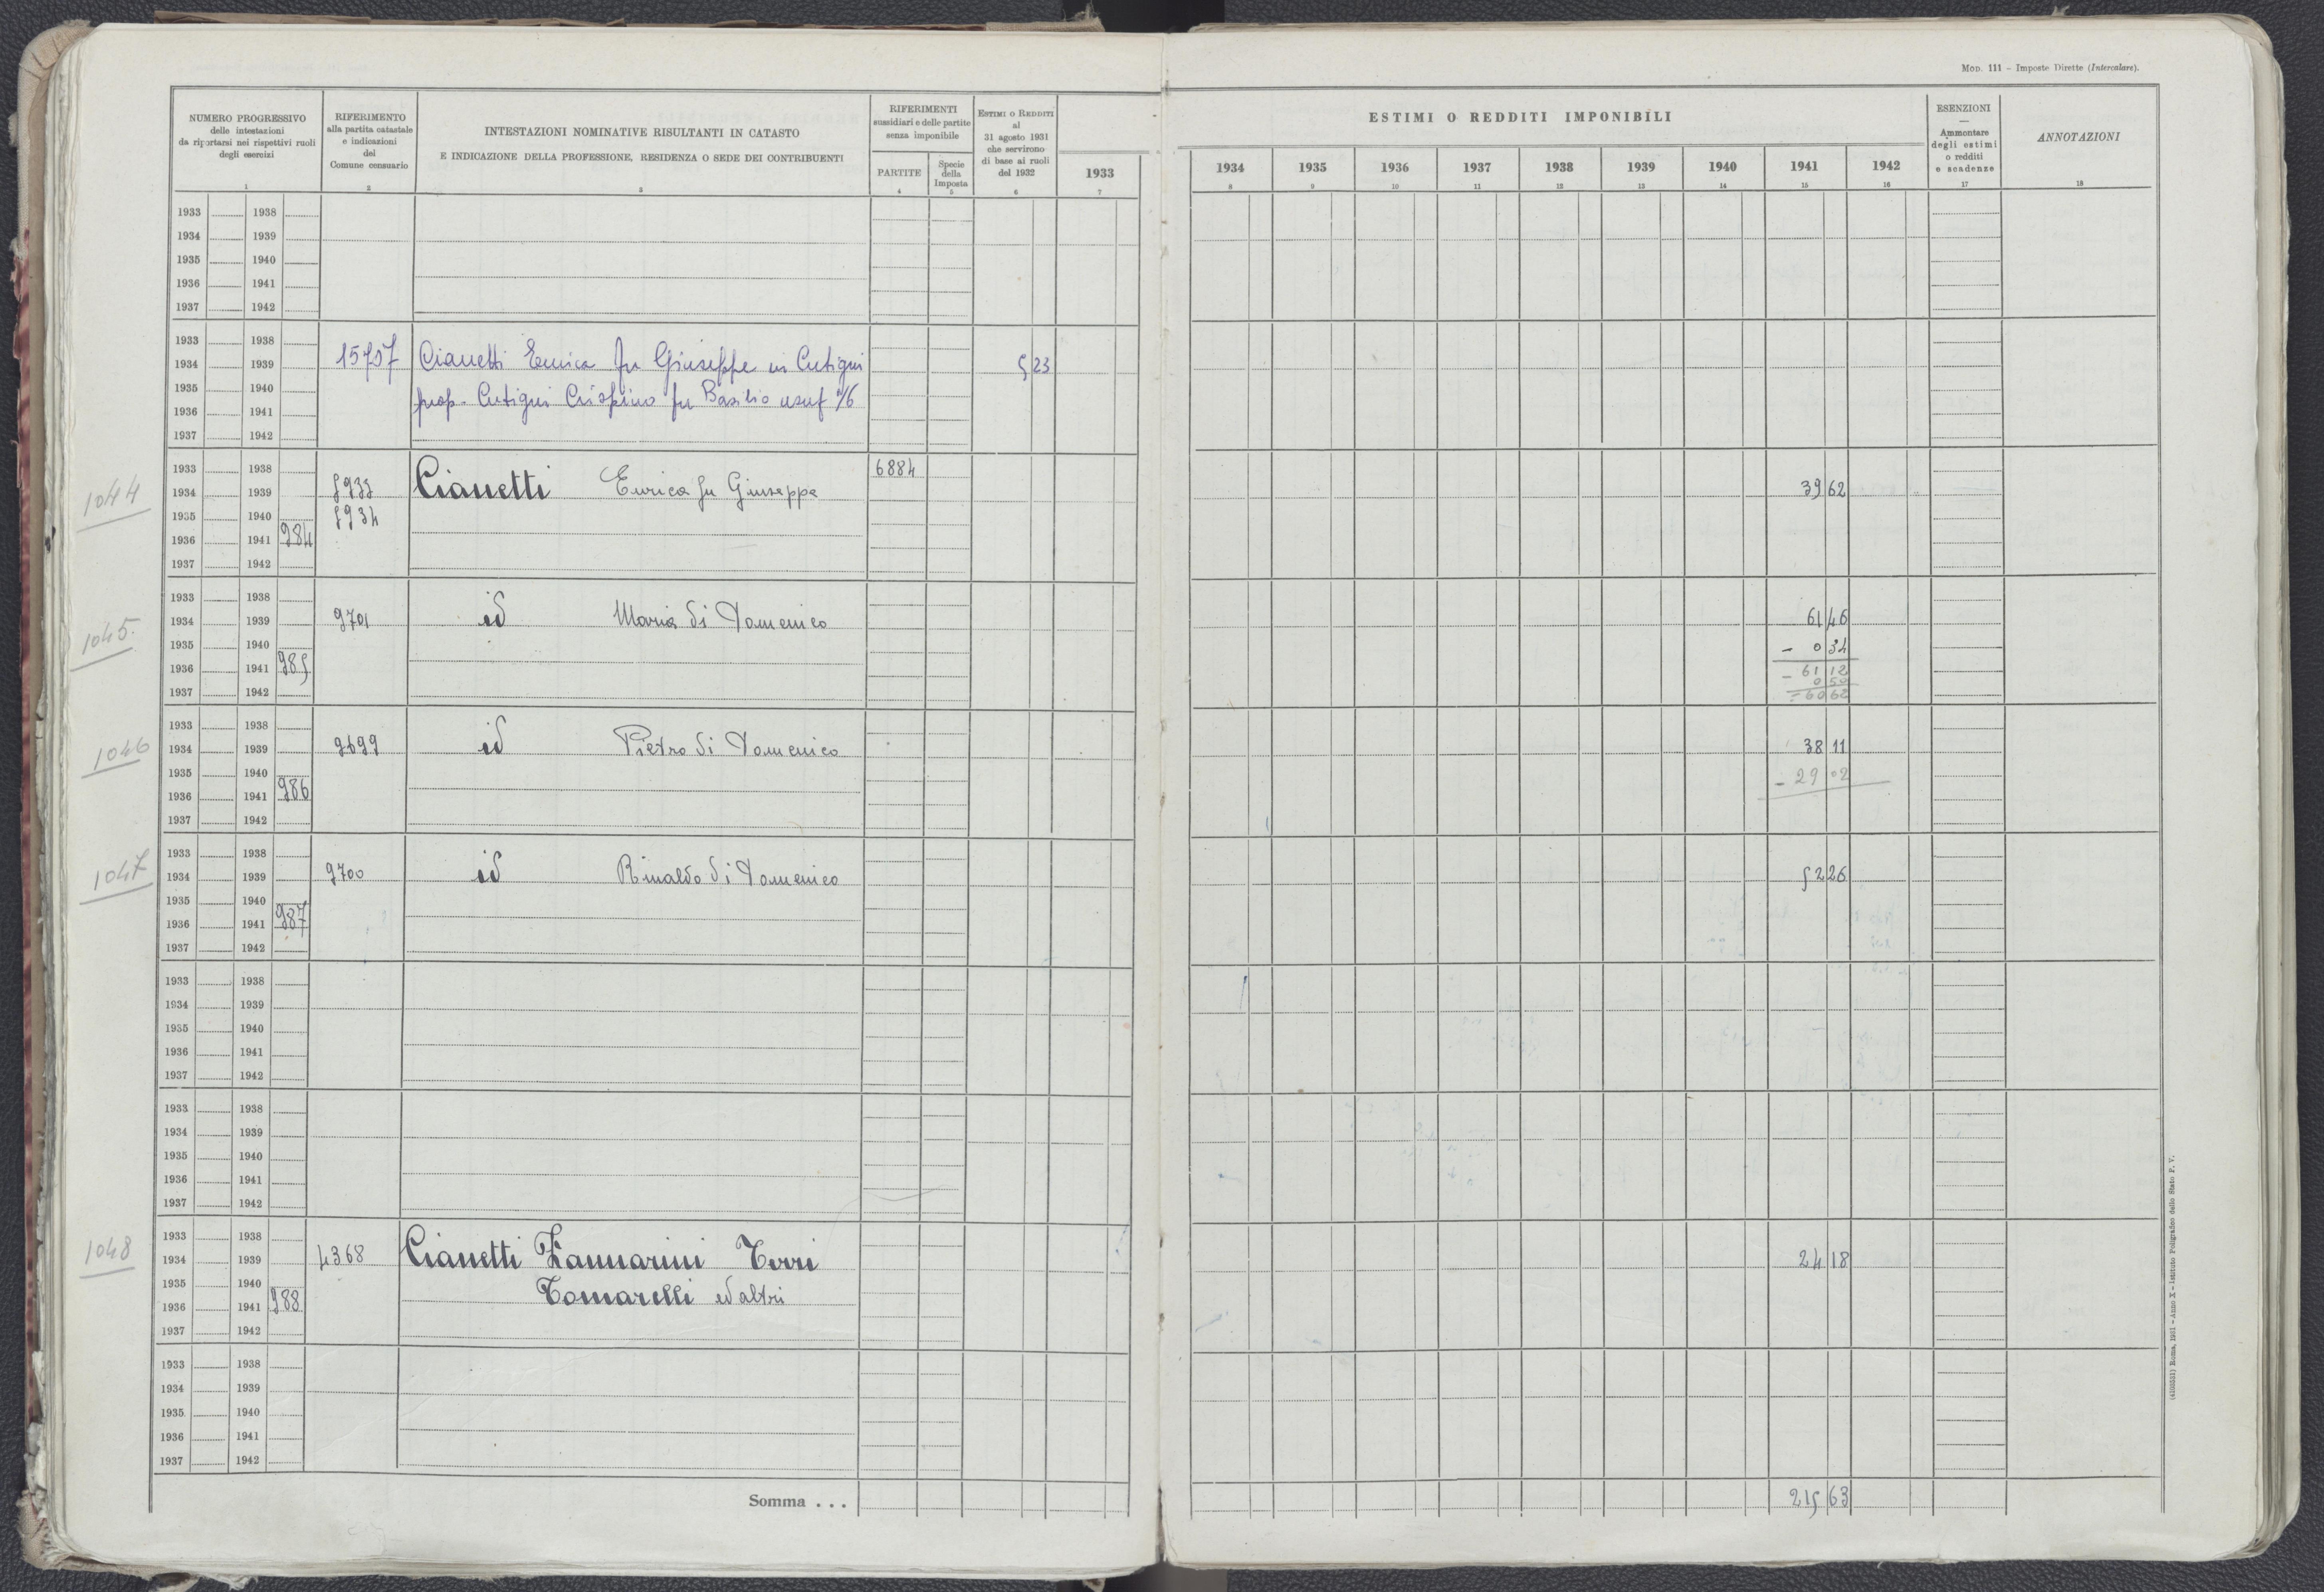 MOD. 111 – Imposte Dirette (Intercalare).
NUMERO PROGRESSIVO
delle intestazioni
da riportarsi nei rispettivi ruoli
degli esercizi
1
RIFERIMENTO
alla partita catastale
e indicazioni
del
Comune censuario
2
INTESTAZIONI NOMINATIVE RISULTANTI IN CATASTO
E INDICAZIONE DELLA PROFESSIONE, RESIDENZA O SEDE DEI CONTRIBUENTI
3
RIFERIMENTI
sussidiari e delle partite
senza imponibile
PARTITE
4
Specie
della
Imposta
5
ESTIMI O REDDITI
al
31 agosto 1931
che servirono
di base ai ruoli
del 1932
6
1933
7
ESTIMI O REDDITI IMPONIBILI
1934 1935 1936 1937 1938 1939 1940 1941 1942
8 9 10 11 12 13 14 15 16
ESENZIONI
—
Ammontare
degli estimi
o redditi
e scadenze
17
ANNOTAZIONI
18
1933 1938
1934 1939
1935 1940
1936 1941
1937 1942
1933 1938
1934 1939 15757 Cianetti Enrica fu Giuseppe in Cutigni 5 23
1935 1940 prop. Cutigni Crispino fu Basilio usuf
1936 1941
1937 1942
1933 1938 6884
1044 1934 1939 5933 Cianetti Enrica fu Giuseppe 39 62
1935 1940 5934
1936 1941 984
1937 1942
1933 1938
1045. 1934 1939 9701 id Maria di Domenico 61 46
1935 1940 – 0 34
1936 1941 985 – 61 12
0 50
1937 1942 = 60 62
1933 1938
1046 1934 1939 9699 id Pietro di Domenico 38 11
1935 1940 – 29 02
1936 1941 986
1937 1942
1933 1938
1047 1934 1939 9700 id Rinaldo di Domenico 52 26
1935 1940
1936 1941 987
1937 1942
1933 1938
1934 1939
1935 1940
1936 1941
1937 1942
1933 1938
1934 1939
1935 1940
1936 1941
1937 1942
1933 1938
1048 1934 1939 4368 Cianetti Zannarini Terri 24 18
1935 1940 Tomarelli ed altri
1936 1941 988
1937 1942
1933 1938
1934 1939
1935 1940
1936 1941
1937 1942
Somma . . . 215 63
(4103531) Roma, 1931 – Anno X – Istituto Poligrafico dello Stato P. V.